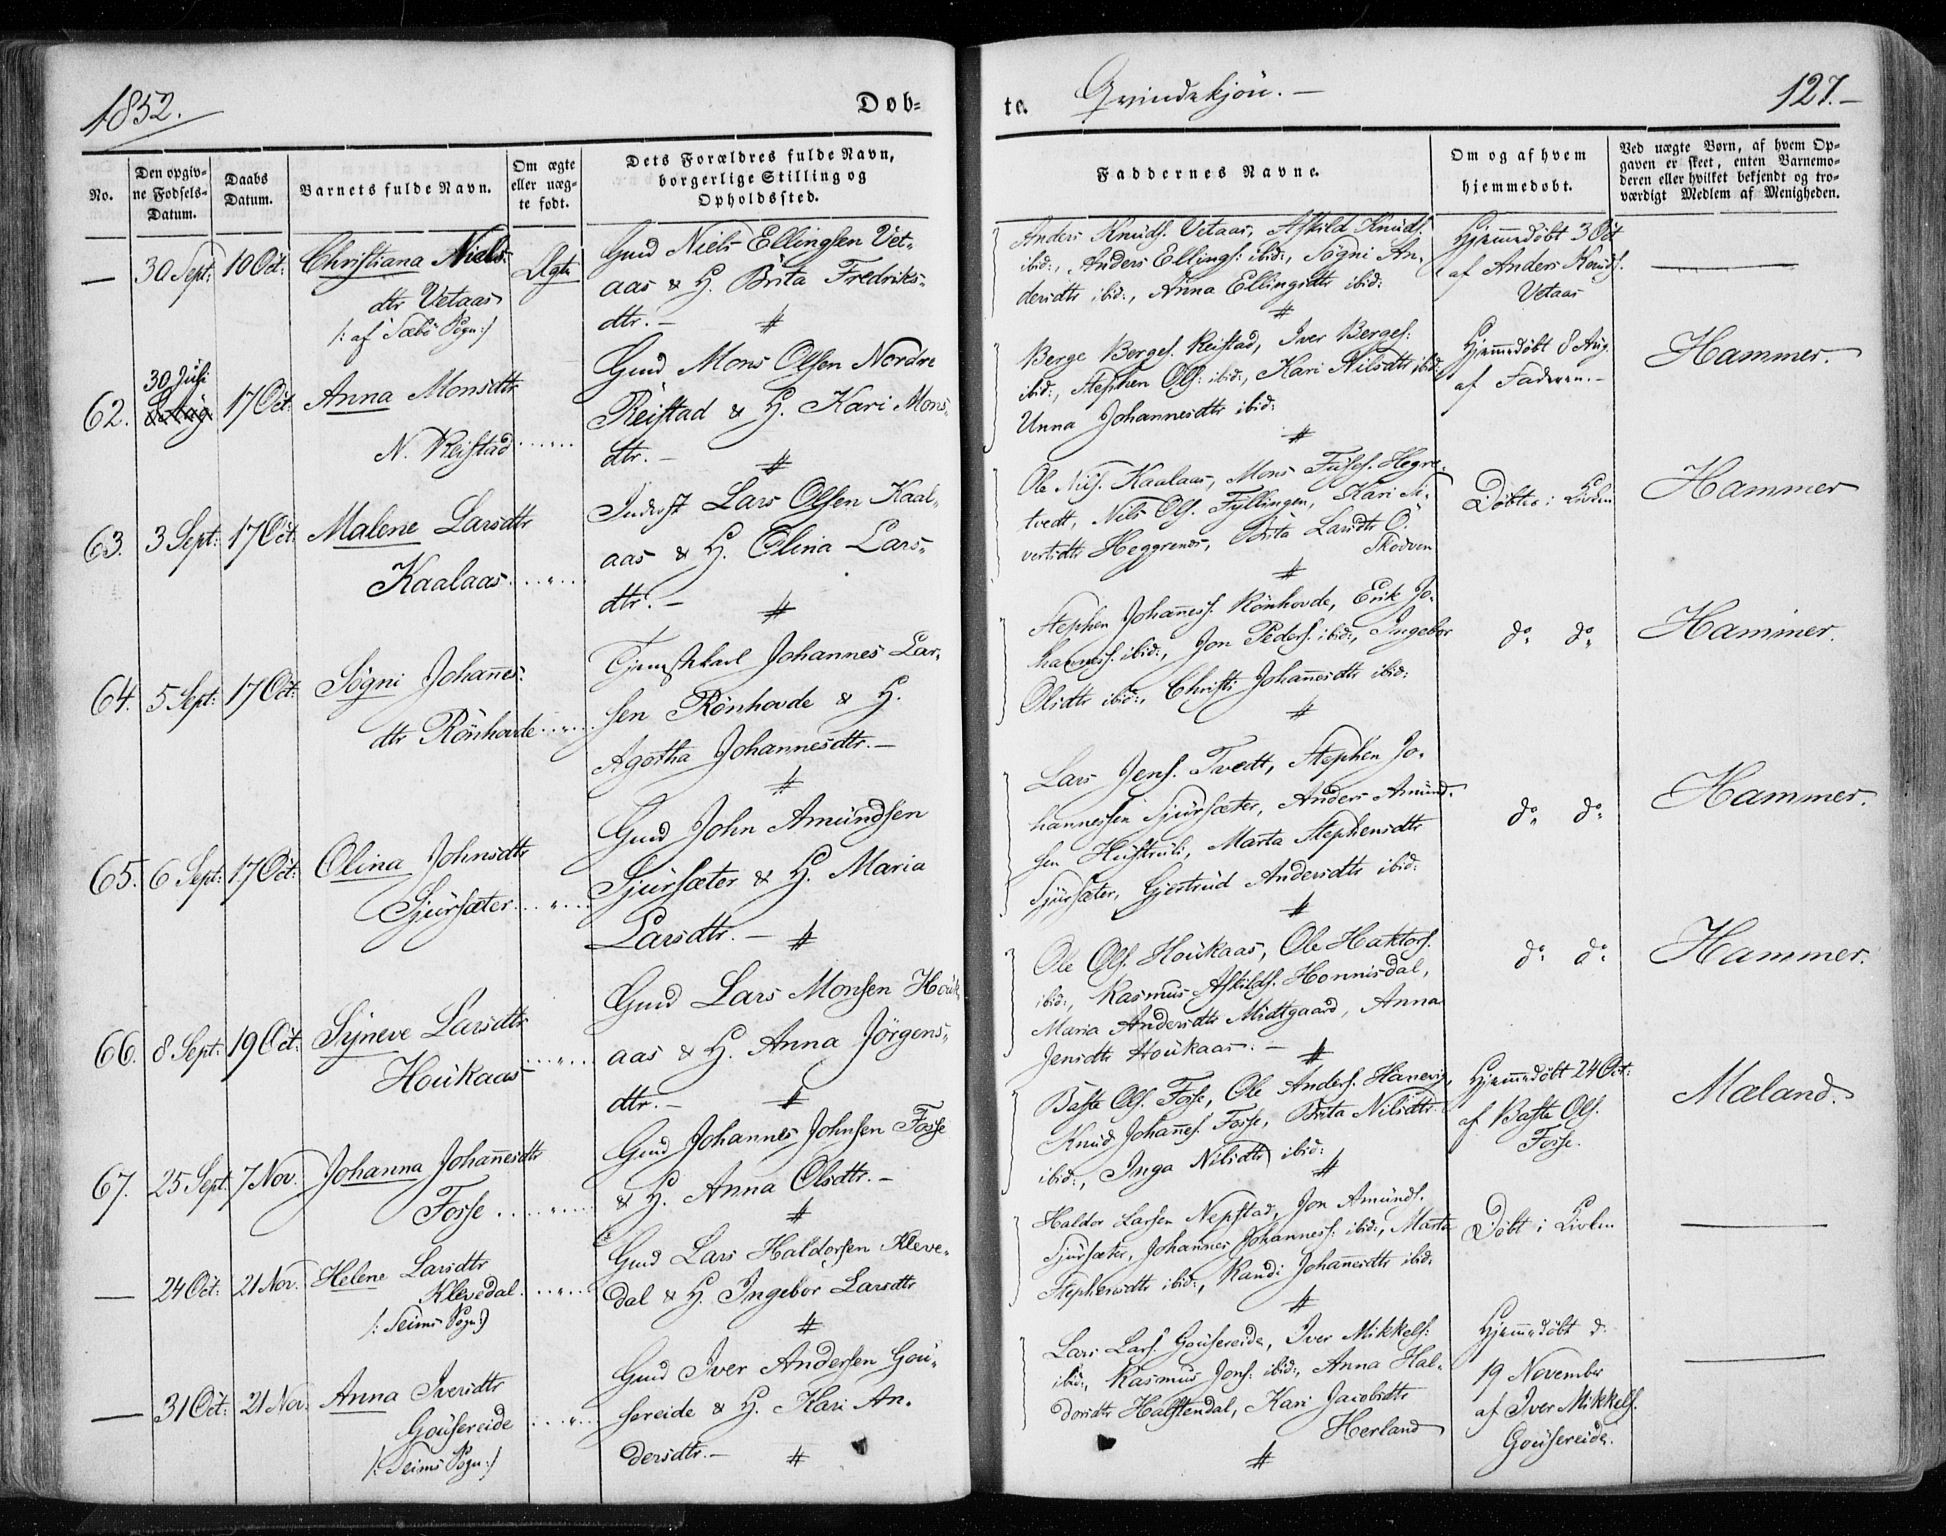 1852.
Døb-
te.
Qvindekjön.—
127.—
No.
Den opgiv-
ne Fødsels-
Datum.
Daabs
Datum.
Barnets fulde Navn.
Om ægte
eller uæg-
te født.
Dets Forældres fulde Navn,
borgerlige Stilling og
Opholdssted.
Faddernes Navne.
Om og af hvem
hjemmedøbt.
Ved uægte Børn, af hvem Op-
gaven er skeet, enten Barnemo-
deren eller hvilket bekjendt og tro-
værdigt Medlem af Menigheden.
— 30 Sept: 10 Oct: Christiana Niels-
dtr Vetaas
/: af Sæbö Sogn:/
Ægte
Gmd Niels Ellingsen Vet-
aas & H. Brita Fredriks-
dtr.—
Anders Knuds. Vetaas, Askild Knuds.
ibid:, Anders Ellings: ibid:, Sögni An-
dersdtr ibid:, Anna Ellingsdtr ibid:
Hjemmedöbt 3 Oct
af Anders Knuds.
Vetaas
—
62. 30 Juli 17 Oct: Anna Monsdtr
N. Reistad
Gmd Mons Olsen Nordre
Reistad & H. Kari Mons-
dtr.—
Berge Berges. Reistad, Iver Berges:
ibid:, Stephen Ols: ibid:, Kari Nilsdtr ibid:
Unna Johannesdtr ibid:
Hjemmedöbt 8 Aug.
af Faderen.—
Hammer.
63. 3 Sept: 17 Oct: Malene Larsdtr
Kaalaas
Inderst Lars Olsen Kaal-
aas & H. Olina Lars-
dtr.—
Ole Nils. Kaalaas, Mons Hegre-
tvedt, Nils Ols. Fyllingen, Kari
Heggrenes, Brita Larsdtr Ö.
Skodven
Döbte i Kirken
Hammer
64. 5 Sept: 17 Oct: Sögni Johannes-
dtr Rönhovde
Tjenestkarl Johannes Lar-
sen Rönhovde & H.
Agotha Johannesdtr.—
Stephen Johanness. Rönhovde, Erik Jo-
hanness. ibid:, Jon Peders. ibid:, Ingebor
Olsdtr ibid:, Christi Johannesdtr ibid:
do do
Hammer.
65. 6 Sept: 17 Oct: Olina Johnsdtr
Sjursæter
Gmd John Amundsen
Sjursæter & H. Maria
Larsdtr.—
Lars Jens. Tvedt, Stephen Jo-
hannessen Sjursæter, Anders Amund-
sen Hustruli, Marta Stephensdtr
Sjursæter, Gjertrud Andersdtr ibid:
do do
Hammer.
66. 8 Sept: 19 Oct: Syneve Larsdtr
Houkaas
Gmd Lars Monsen Houk-
aas & H. Anna Jörgens-
dtr.—
Ole Ols. Houkaas, Ole Haktors.
ibid:, Rasmus Askilds. Honnisdal,
Maria Andersdtr Midtgaard, Anna
Jensdtr Houkaas.—
do do
Hammer.
67. 25 Sept. 7 Nov. Johanna Johannesdtr
Fosse
Gmd Johannes Johnsen Fosse
& H. Anna Olsdtr.—
Baste Ols. Fosse, Ole Anders. Hanevig,
Knud Johannes. Fosse, Brita Nilsdtr
ibid:, Inga Nilsdtr ibid:
Hjemmedöbt 24 Oct:
af Baste Ols.
Fosse.
Mæland.
— 24 Oct: 21 Nov. Helene Larsdtr
Klevedal
/: Seims Sogn:/
Gmd Lars Haldorsen Kleve-
dal & H. Ingebor Larsdtr
Haldor Larsen Nepstad, Jon Amunds.
Sjursæter, Johannes Johanness. ibid:, Marta
Stephensdtr ibid:, Randi Johannesdtr ibid.
Döbt i Kirken
—
— 31 Oct: 21 Nov. Anna Iversdtr
Gousereide
/: Seims Sogn:/
Gmd Iver Andersen Gou-
sereide & H. Kari An-
dersdtr.—
Lars Lars. Gousereide, Iver Mikkels:
ibid:, Rasmus Jons: ibid:, Anna Hal-
dorsdtr Halstendal, Kari Jacobsdtr
Herland
Hjemmedöbt d:
19 November
af Iver Mikkels.
Gousereide.
—